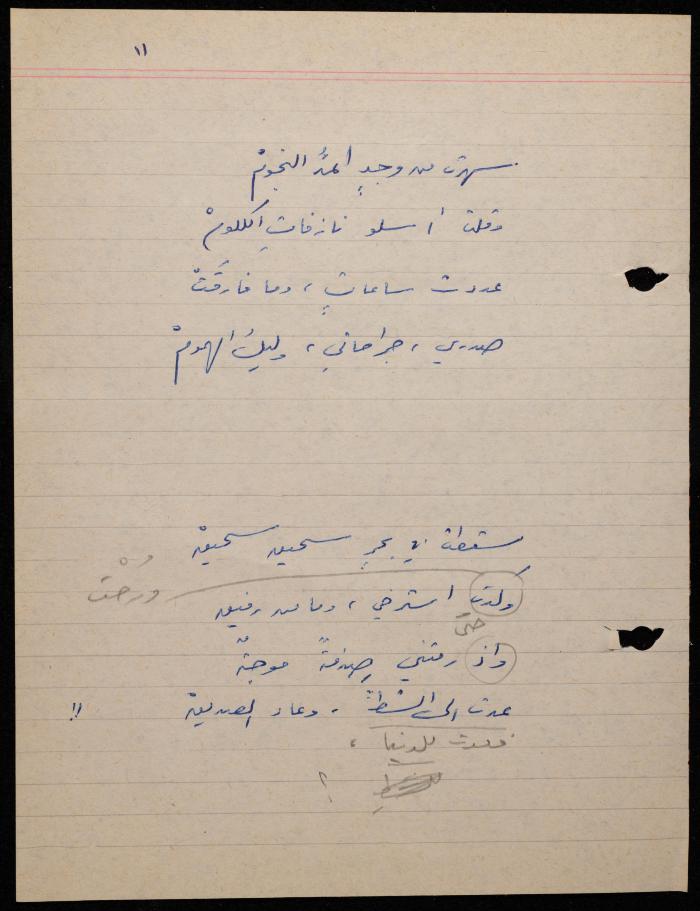 ١١
سهرت من وجدٍ أعدُّ النجومْ
وقلت أسلو نازفاتِ الكلومْ
عددت ساعاتٍ، وما فارقَتْ
صدري، جراحاتي، وليلُ الهمومْ
سقطت في بحرٍ سحيقٍ سحيقْ
وكدت استرخي، وما من رفيق
ورُحْتُ
حتى
واذ رمتني صدفةً موجةٌ
عدت الى الشطِّ، وعاد الصديقْ !!
فعدت للدنيا،
؟